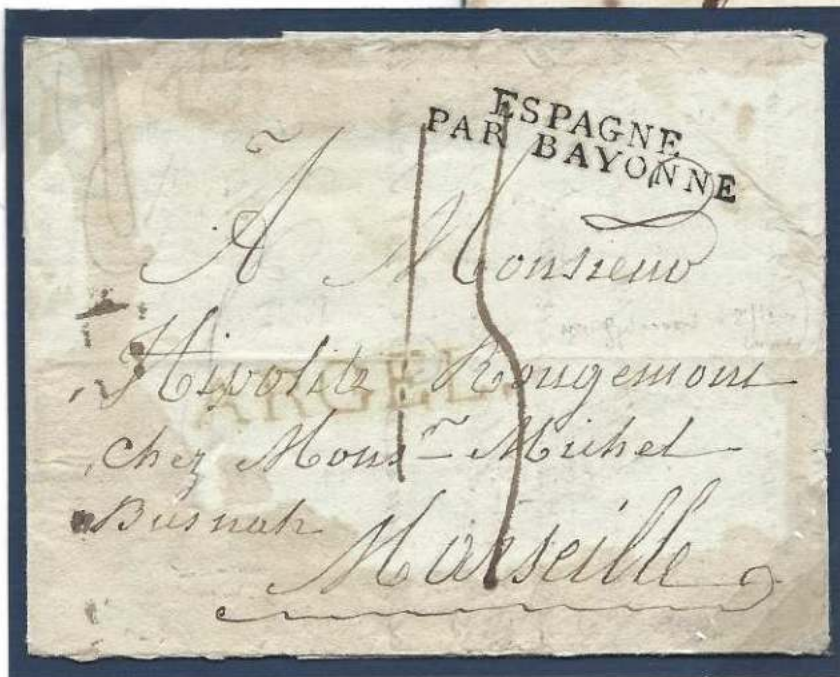 ESPAGNE
PAR BAYONNE
A Monsieur
15
Hipolite Rougemont
ARGEL
chez Monsr Michel
Busnah
Marseille